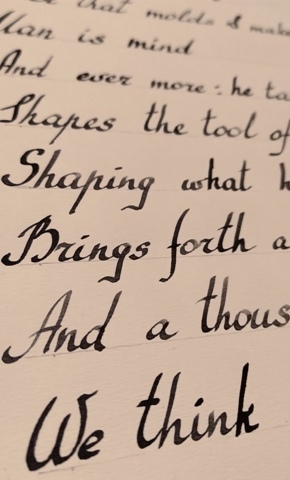 that molds & make
Man is mind
And ever more: he ta
Shapes the tool of
Shaping what h
Brings forth a
And a thous
We think